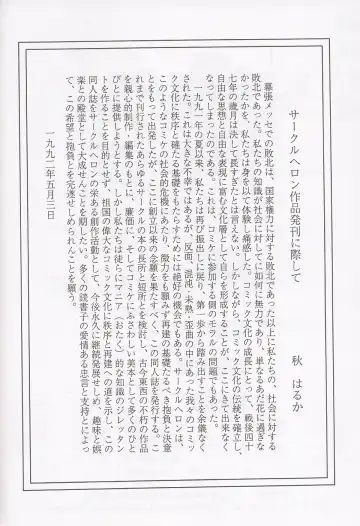 サークルヘロン作品発刊に際して
秋　はるか
幕張メッセでの敗北は、国家権力に対する敗北であった以上に私たちの、社会に対する
敗北であった。私たちの知識が社会に対して如何に無力であり、単なるあだ花に過ぎな
かったかを、私たちは身を以て体験し痛感した。コミック文化の成長にとって、戦後四十
七年の歳月は決して長すぎたとは言えない。しかしながら、コミック文化の伝統を確立し、
自由な思想と自由な表現に富む文化層として自らを形成することが、ここにきて出来なく
なってしまったのである。これは、コミケに参加する側のモラルの問題でもあった。
一九九一年の夏以来、私たちは再び振出しに戻り、第一歩から踏み出すことを余儀なく
された。これは大きな不幸ではあるが、反面、混沌・未熟・歪曲の中にあった我々のコミッ
ク文化に秩序と確たる基礎をもたらすためには絶好の機会でもある。サークルヘロンは、
このようなコミケの社会的危機にあたり、微力をも顧みず再建の基礎たるべき抱負と決意
とをもって出発したが、ここに創立以来の念願を果たすべく、この同人誌を発行する。こ
れまで刊行されたあらゆるオタク本の長所と短所とを検討し、古今東西の不朽の作品
を良心的制作・編集のもとに、廉価に、そしてコミケにふさわしい美本として多くのひと
びとに提供しようとする。しかし私たちは徒らにマニア（おたく）的な知識のジレッタン
トを作ることを目的とせず、祖国の偉大なコミック文化に秩序と再建への道を示し、この
同人誌をサークルヘロンの栄ある創作活動として、今後永久に継続発展せしめ、趣味と娯
楽との殿堂として大成せんことを期したい。多くの読書子の愛情ある忠言と支持とによっ
て、この希望と抱負とを完遂せしめられんことを願う。
一九九二年五月三日